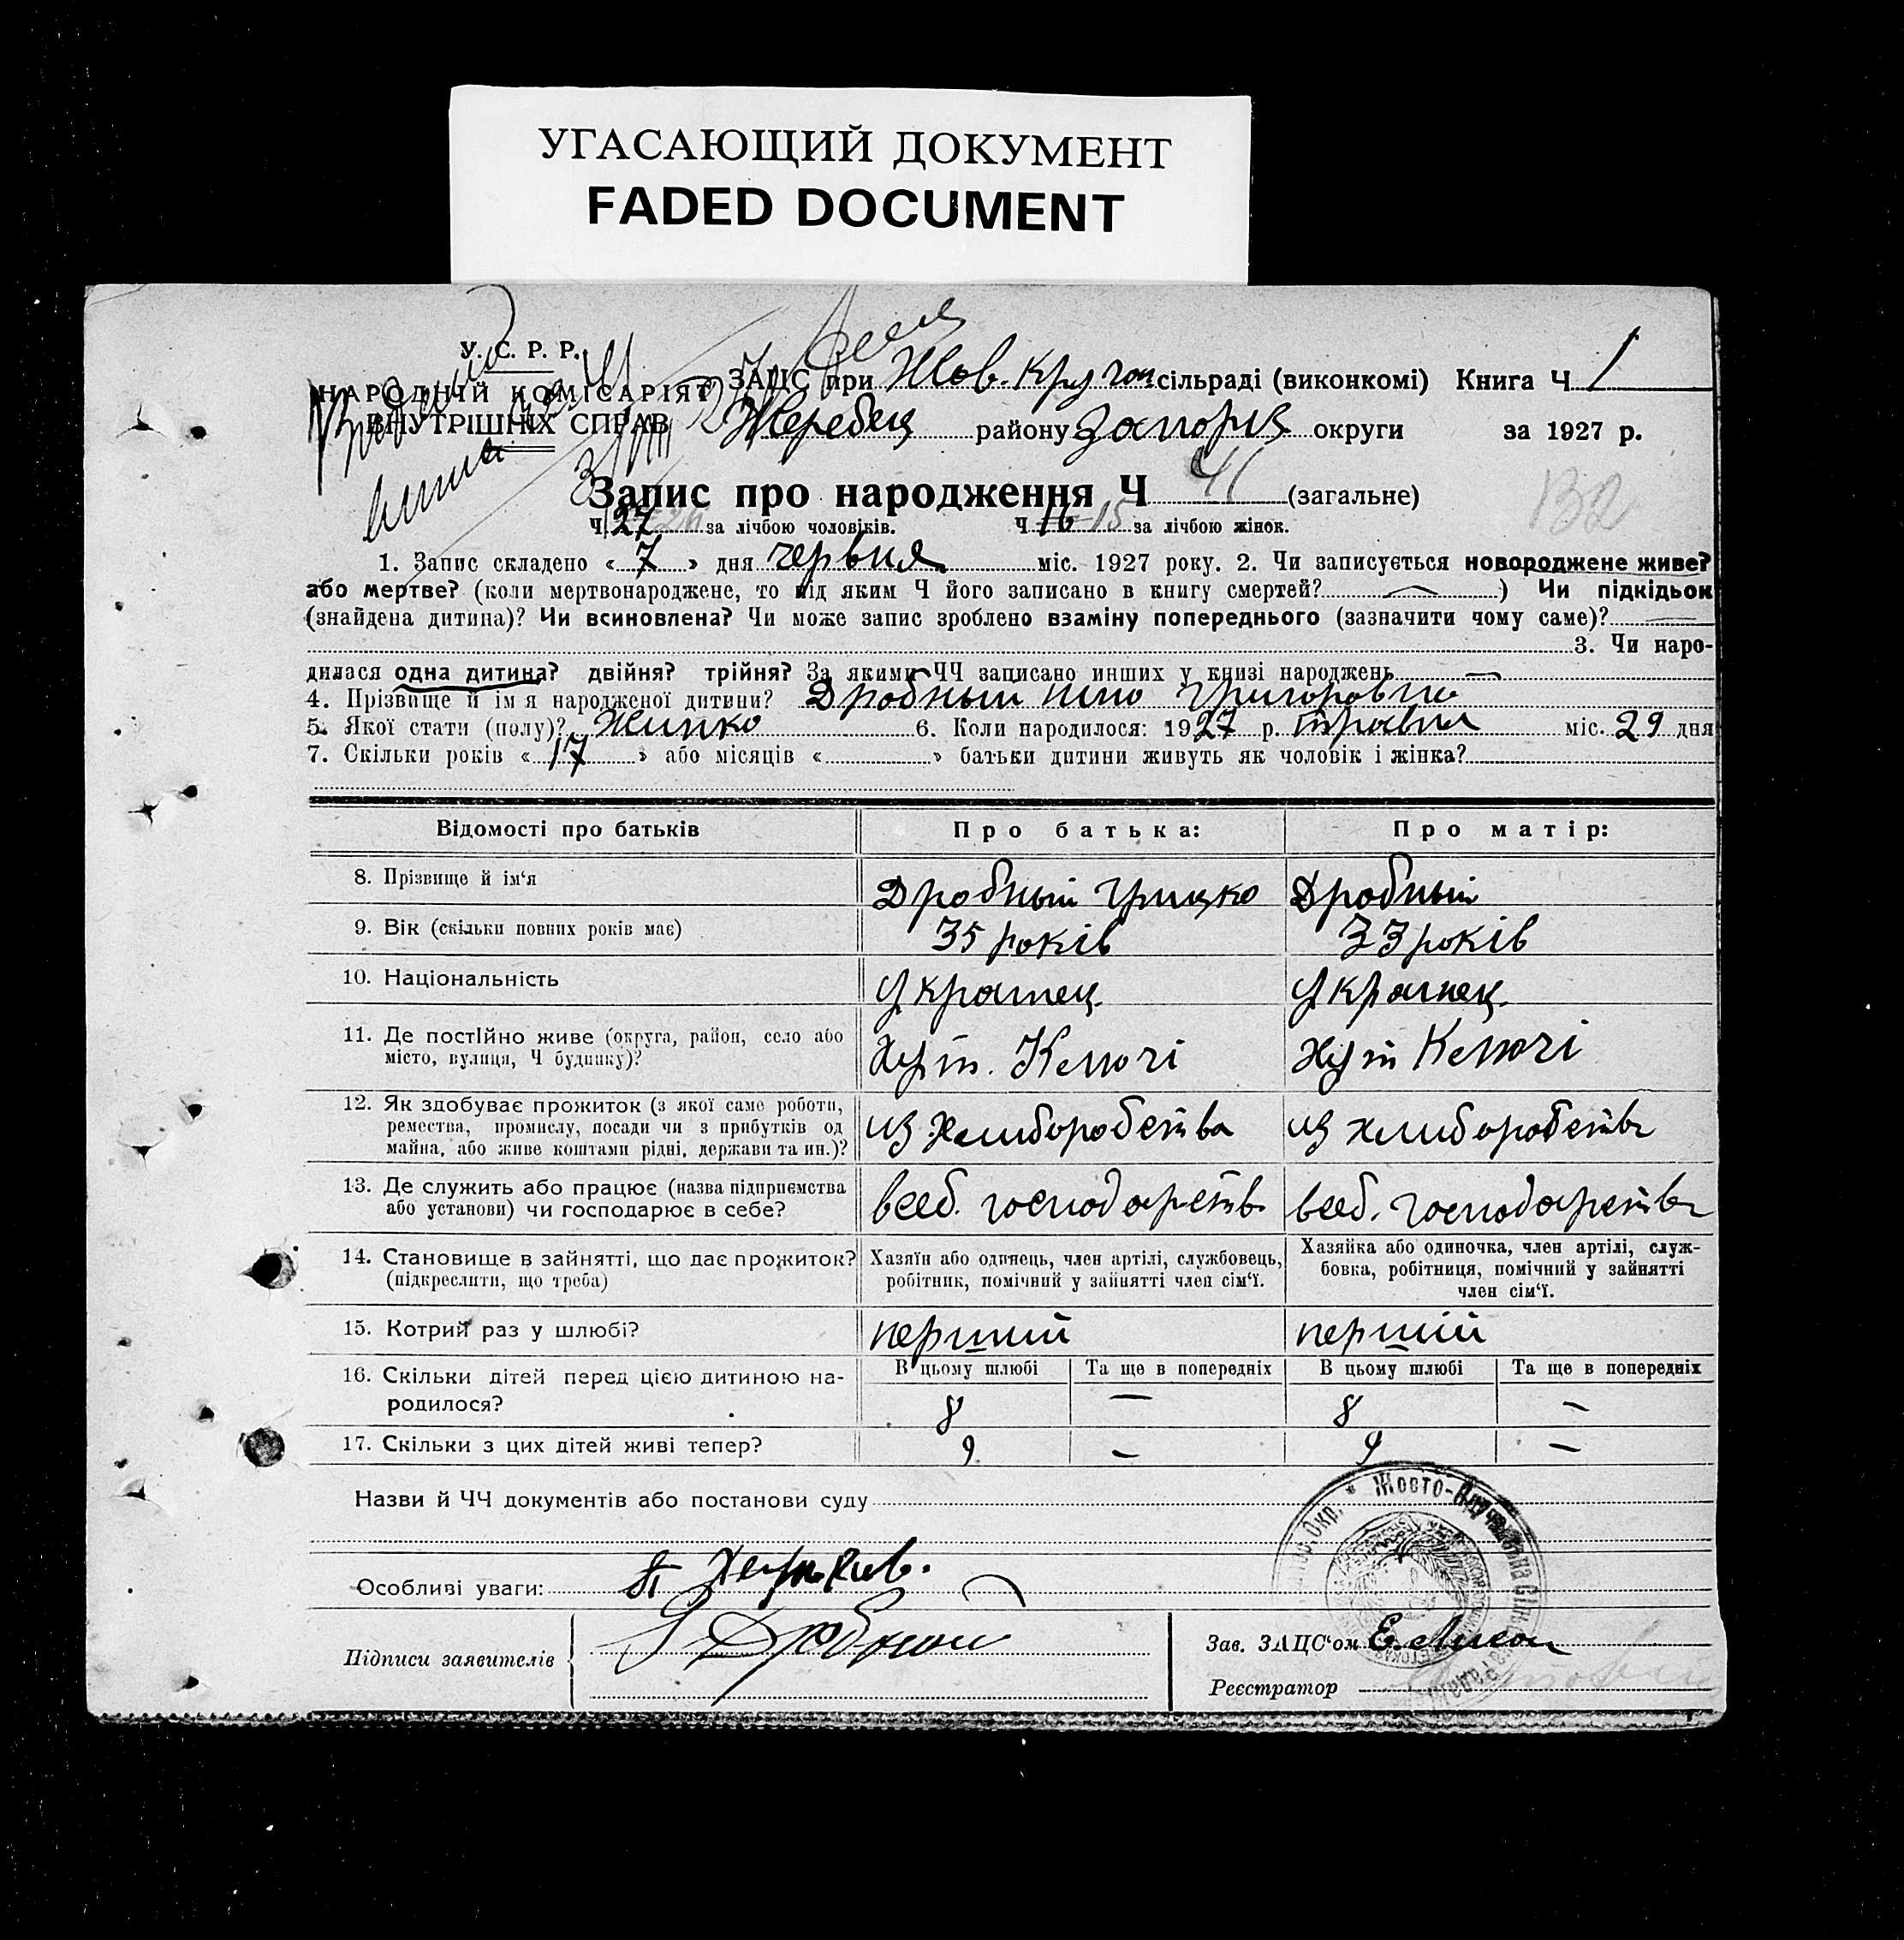 УГАСАЮЩИЙ ДОКУМЕНТ
FADED DOCUMENT
У. С. Р. Р.
НАРОДНІЙ КОМІСАРІЯТ
ВНУТРІШНІХ СПРАВ
ЗАЦС при Жов. Кругон сільраді (виконкомі) Книга Ч 1
Жеребец району Запоріз округи за 1927 р.
Запис про народження Ч 41 (загальне)
132
Ч 27 за лічбою чоловіків. Ч 16 15 за лічбою жінок.
1. Запис складено « 7 » дня червня міс. 1927 року. 2. Чи записується новороджене живе?
або мертве? (коли мертвонароджене, то під яким Ч його записано в книгу смертей? — ) Чи підкідьок
(знайдена дитина)? Чи всиновлена? Чи може запис зроблено взаміну попереднього (зазначити чому саме)? —
3. Чи наро-
дилася одна дитина? двійня? трійня? За якими ЧЧ записано инших у книзі народжень —
4. Прізвище й ім'я народженої дитини? Дробный Григоровна
5. Якої статі (полу)? Жинко 6. Коли народилося: 1927 р. травня міс. 29 дня
7. Скільки років « 17 » або місяців « » батьки дитини живуть як чоловік і жінка?
Відомості про батьків Про батька: Про матір:
8. Прізвище й ім'я Дробный Грицко Дробный
9. Вік (скільки повних років має) 35 років 33 років
10. Національність Украінец Украінец
11. Де постійно живе (округа, район, село або
місто, вулиця, Ч будинку)? Хут. Ключі Хут Ключі
12. Як здобуває прожиток (з якої саме роботи,
ремества, промислу, посади чи з прибутків од
майна, або живе коштами рідні, держави та ин.)? из хлиборобства из хлиборобства
13. Де служить або працює (назва підприємства
або установи) чи господарює в себе? всеб. господарств всеб. господарств
14. Становище в зайнятті, що дає прожиток?
(підкреслити, що треба)
Хазяїн або одинець, член артілі, службовець,
робітник, помічний у зайнятті член сім'ї.
Хазяйка або одиночка, член артілі, служ-
бовка, робітниця, помічний у зайнятті
член сім'ї.
15. Котрий раз у шлюбі? перший перший
В цьому шлюбі Та ще в попередніх В цьому шлюбі Та ще в попередніх
16. Скільки дітей перед цією дитиною на-
родилося? 8 — 8 —
17. Скільки з цих дітей живі тепер? 9 — 9 —
Назви й ЧЧ документів або постанови суду
Особливі уваги:
Підписи заявителів Дробный
Зав. ЗАЦС'ом
Реєстратор